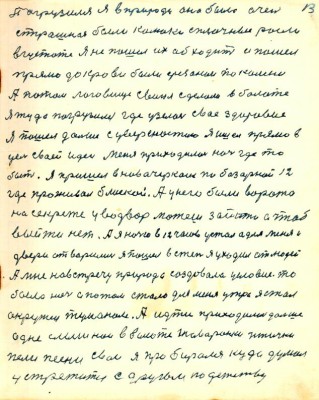 13
Погрузился я в природу она была очен
страшная были камыш сплачный росли
в густоте Я не пошел их обходит а пошел
прямо до крови были срезаны по колени
А потом логовище Свиня сделала в болоте
Я туда погрузился где узелок свое здоровие
Я пошел дальше с уверенностию Я ишол прямо в
цел своей идеи меня приходилос ноч где то
быт. Я пришел в новачеркаск по базарной 12
где проживал близкой. А у него были ворота
на секрете у во двор можеш зайти а таб
выйти нет. А я ночю в 12 часов устал а для меня и
двери отварили Я пошел в степ Я уходил от людей
А мне навстречу природа создовала условие. то
была ноч а потом стало для меня утро Я стал
окружен туманом. А идти приходилос дальше
одно слышно в болоте товарочки птички
пели песни свои я пробирался куда думал
устретится с другом по детству